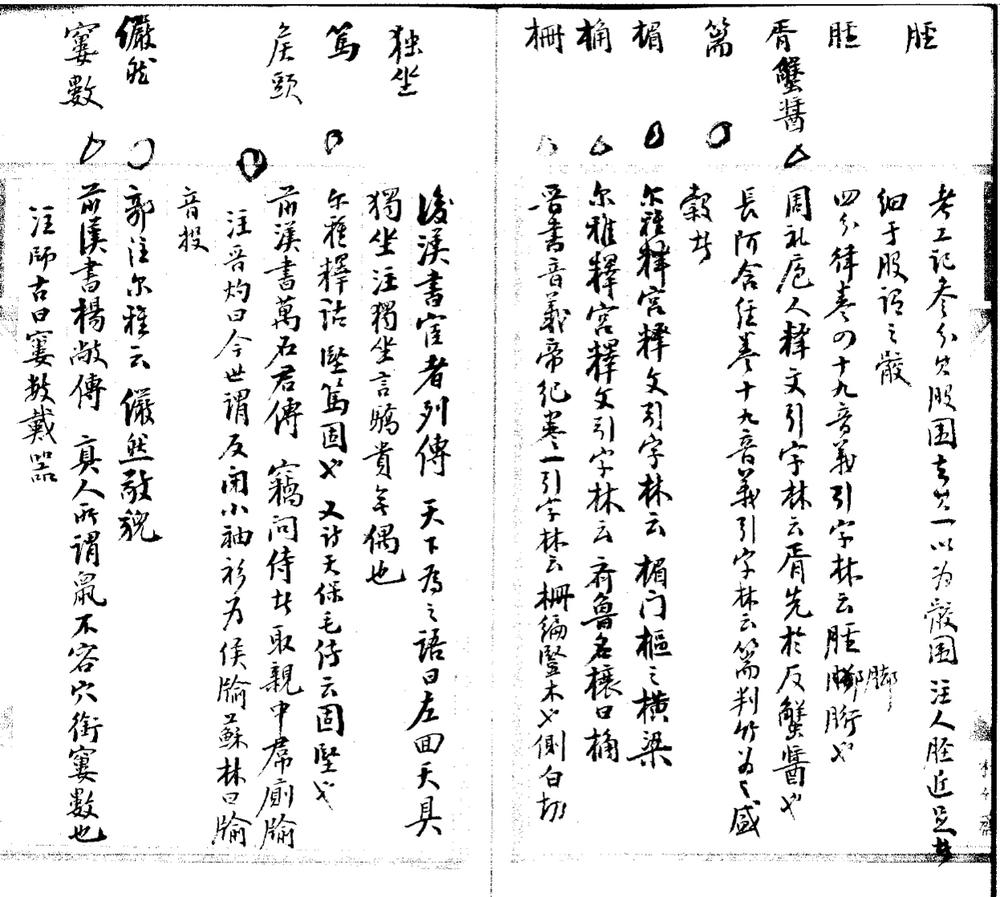 脛
考工記參分其股圍去其一以為骹圍 注人脛近足者
細于股謂之骹
脛
四分律卷四十九音義引字林云脛腳胻也
腳
胥蟹醬
周礼庖人釋文引字林云胥先於反蟹醬也
篅
長阿含經卷十九音義引字林云篅判竹為之盛
穀者
楣
尔雅釋宮釋文引字林云楣門樞之橫梁
桷
尔雅釋宮釋文引字林云齊魯名榱曰桷
柵
晉書音義帝紀卷一引字林云柵編豎木也側白切
独坐
後漢書宦者列傳 天下為之語曰左回天具
獨坐注獨坐言驕貴無偶也
篤
尔雅釋詁堅篤固也又詩天保毛傳云固堅也
侯頭
前漢書萬石君傳 竊問侍者取親中帬廁牏
注晉灼曰今世謂反閉小袖衫為侯牏蘇林曰牏
音投
儼然
郭注尔雅云儼然敬貌
窶數
前漢書楊敞傳 真人所謂鼠不容穴銜窶數也
注師古曰窶數戴器